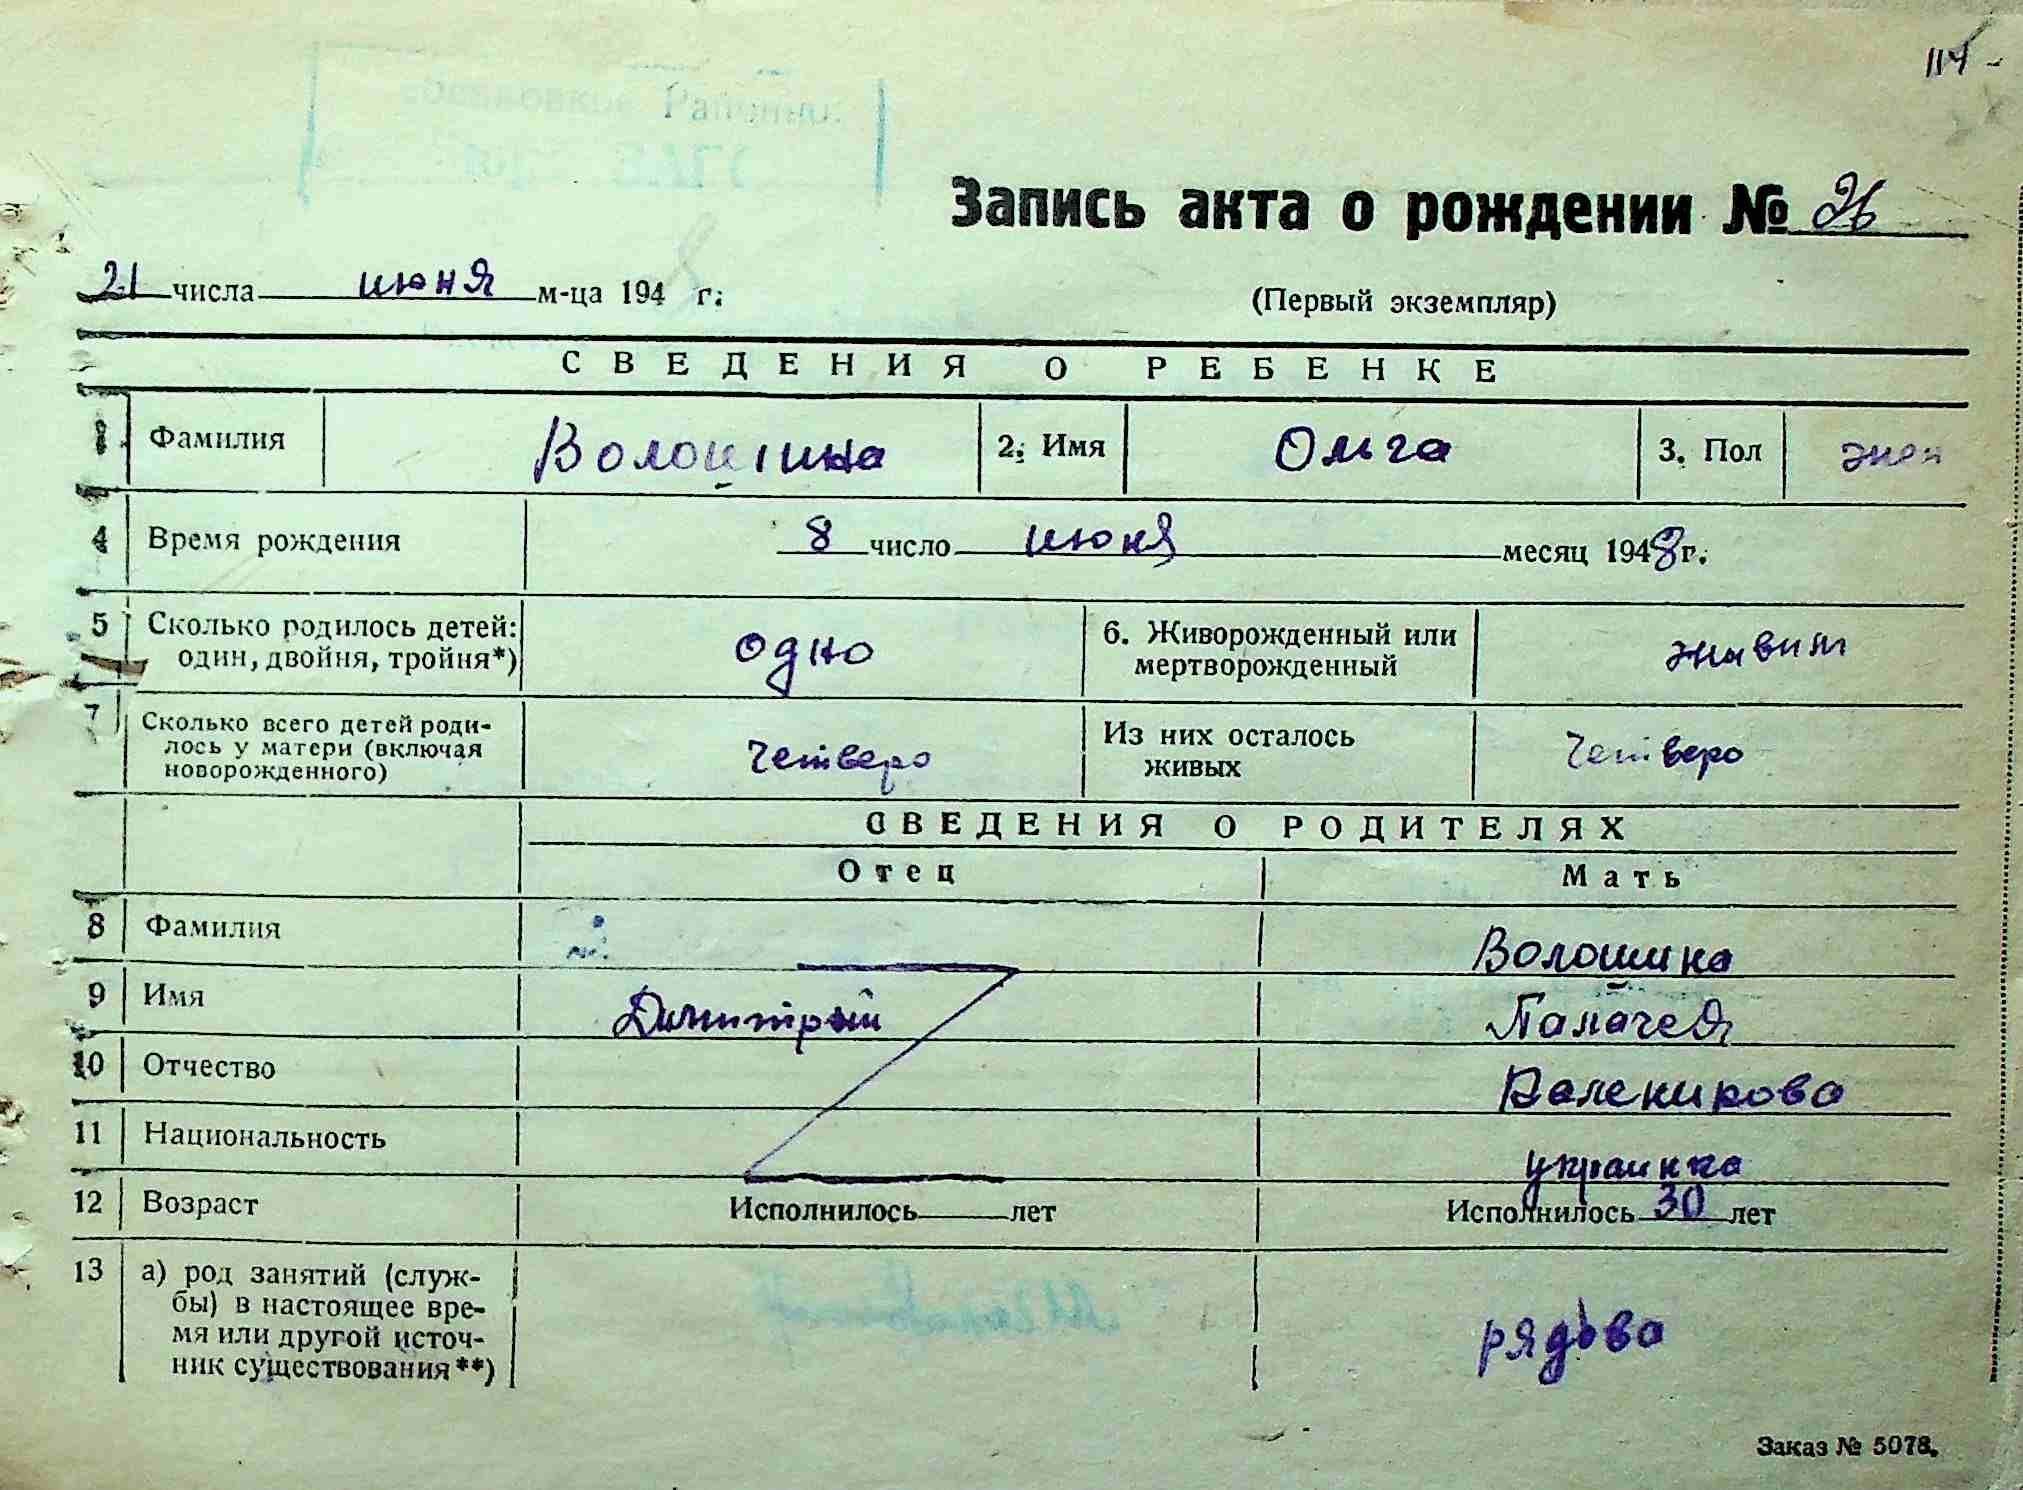 114 -
Запись акта о рождении № 26
21 числа июня м-ца 194 г.
(Первый экземпляр)
СВЕДЕНИЯ О РЕБЕНКЕ
1. Фамилия Волошина 2. Имя Ольга 3. Пол жен
4 Время рождения 8 число июня месяц 1948 г.
5 Сколько родилось детей: один, двойня, тройня*) одно 6. Живорожденный или мертворожденный
7 Сколько всего детей роди-
лось у матери (включая
новорожденного) четверо Из них осталось живых четверо
СВЕДЕНИЯ О РОДИТЕЛЯХ
Отец Мать
8 Фамилия Волошина
9 Имя Димитрий
10 Отчество
11 Национальность украинка
12 Возраст Исполнилось лет Исполнилось 30 лет
13 а) род занятий (служ-
бы) в настоящее вре-
мя или другой источ-
ник существования**) рядова
Заказ № 5078.